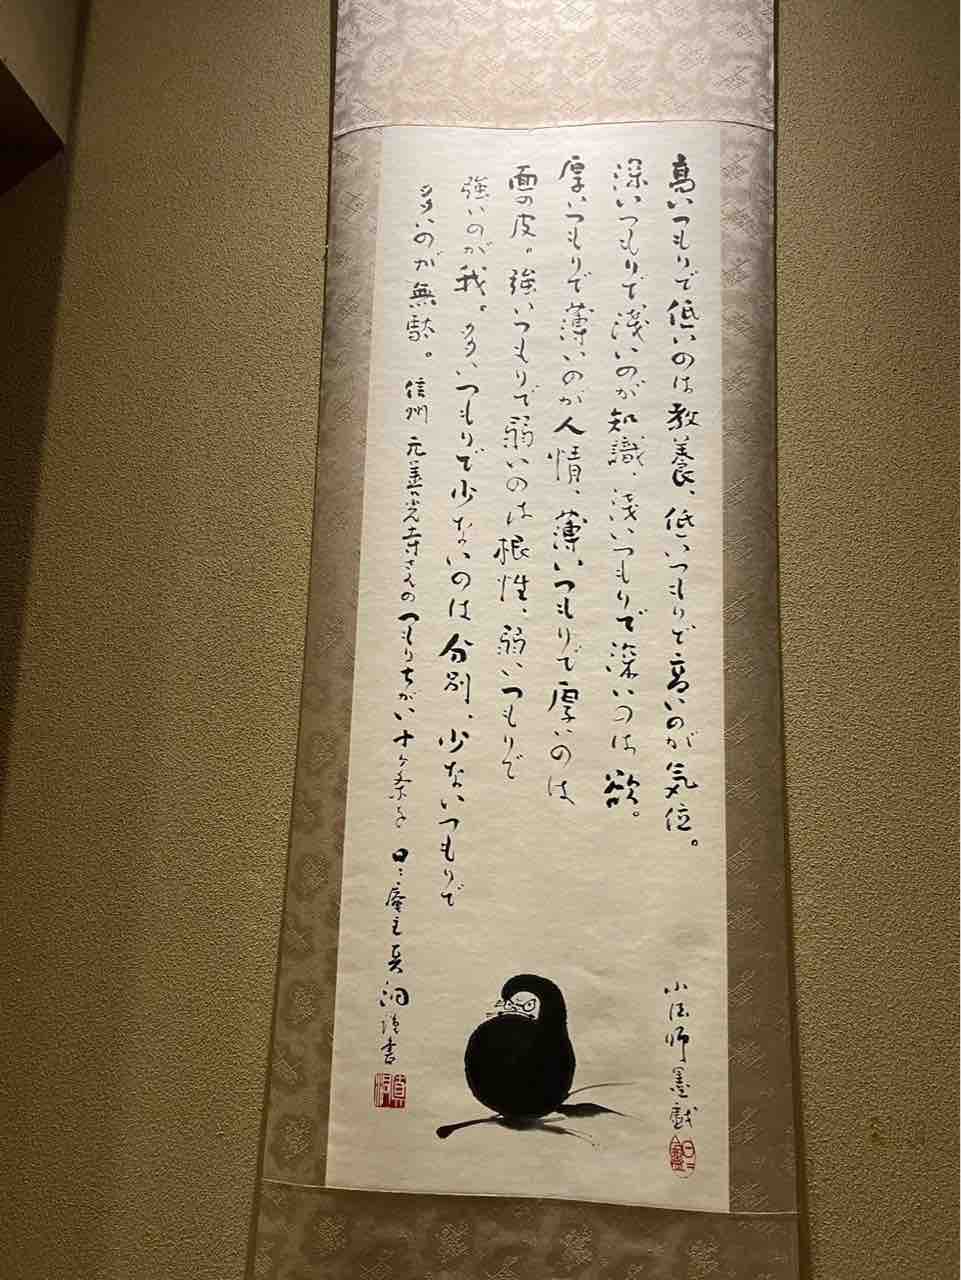 高いつもりで低いのは教養、低いつもりで高いのが気位。
深いつもりで浅いのが知識、浅いつもりで深いのは欲。
厚いつもりで薄いのが人情、薄いつもりで厚いのは
面の皮。強いつもりで弱いのは根性、弱いつもりで
強いのが我。多いつもりで少ないのは分別、少ないつもりで
多いのが無駄。 信州 元善光寺さんの つもりちがい十ヶ条を 日々庵主 真洞 謹書
小法師墨戯